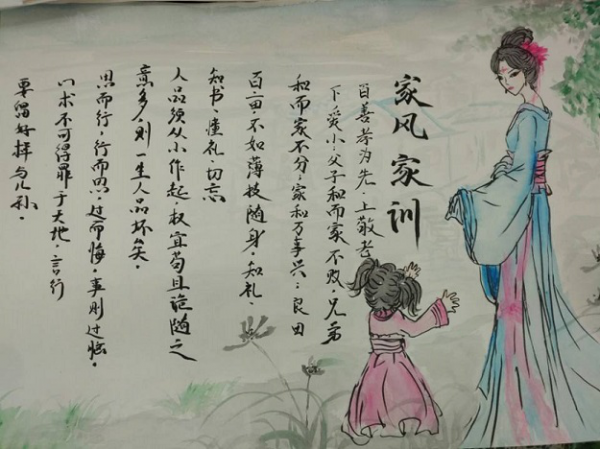 家风家训
百善孝为先.上敬老
下爱小父子和而家不败.兄弟
和而家不分.家和万事兴:良田
百亩.不如薄技随身.知礼
知书.懂礼.切忘
人品须从小作起.权宜苟且诡随之
意多.则一生人品坏矣.
思而行.行而思.过而悔.事则过
术不可得罪于天地.言行
要留好样与儿孙.